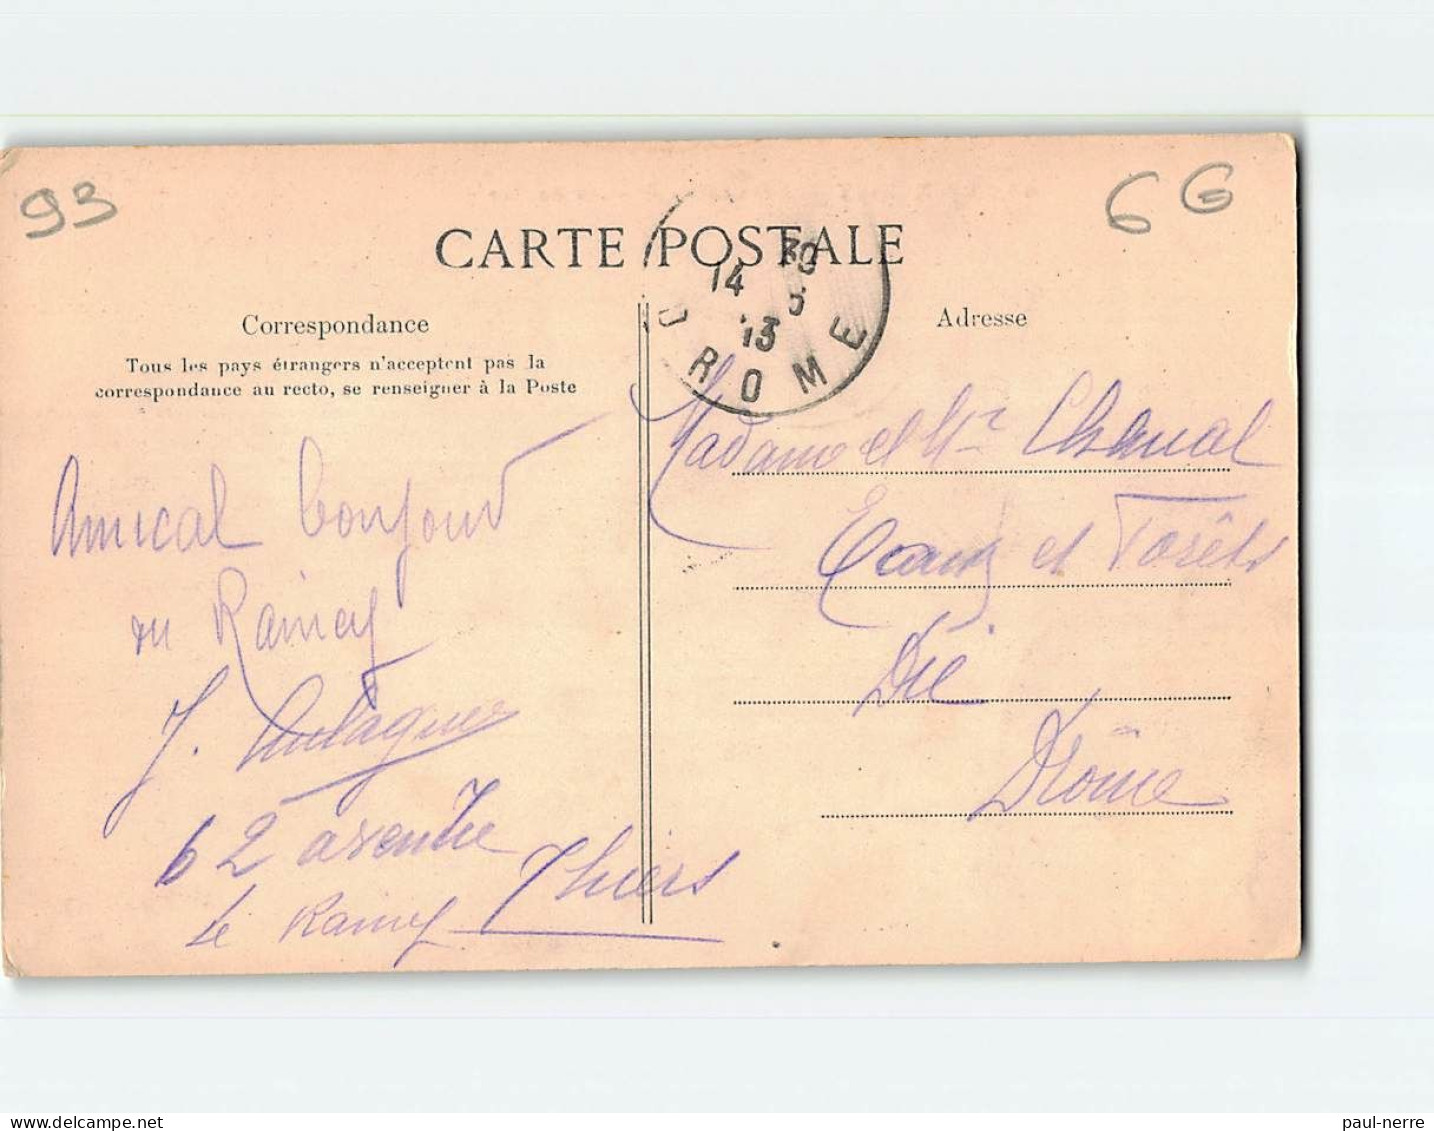 93
6 G
CARTE POSTALE
14 30
5
13
DROME
Correspondance
Tous les pays étrangers n'acceptent pas la
correspondance au recto, se renseigner à la Poste
Amical bonjour
du Raincy
J. Aulagner
62 avenue
Thiers
Le Raincy
Adresse
Madame et Mr Chanal
Eaux et Forêts
Die
Drôme
paul-nerre